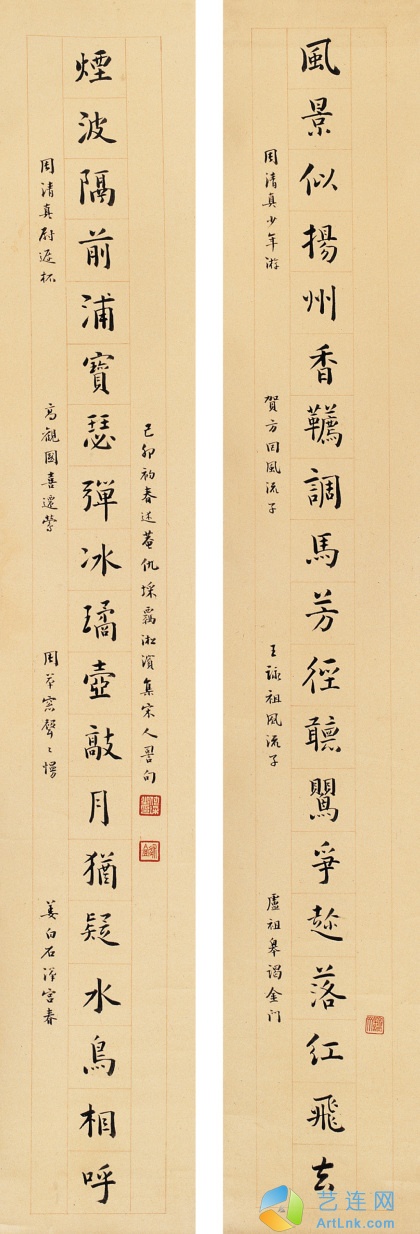 風景似揚州香韉調馬芳徑聽鶯爭趁落紅飛去
周清真少年游
賀方回風流子
王詠祖風流子
盧祖皋謁金门
煙波隔前浦寶瑟彈冰璚壺敲月猶疑水鳥相呼
周清真尉遲杯
高觀國喜遷鶯
周草窗聲々慢
姜白石慶宮春
己卯初春述菴仇埰羈淞濱集宋人詈句
艺连网
ArtLnk.com